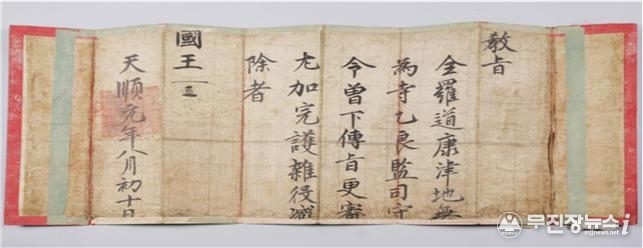 敎旨
全羅道康津地無
為寺乙良監司守
令曾下傳旨更審
尤加完護雜役減
除者
國王
天順元年八月初十日
무진장뉴스 i
mjjnews.net